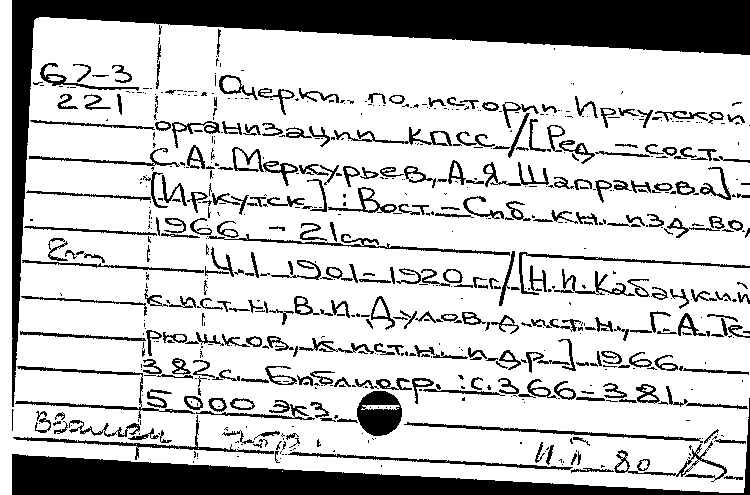 67-3
221
Очерки по истории Иркутской
организации КПСС / [Ред.-сост.
С.А. Меркурьев, А.Я. Шапранова]. -
[Иркутск] : Вост.-Сиб. кн. изд-во,
1966. - 21 см.
Ч.1 1901-1920 гг. / [Н.Н. Кабацкий
к.ист.н., В.И. Дулов, д.ист.н., Г.А. Те-
рюшков, к.ист.н. и др.] 1966.
382 с. Библиогр.: с. 366-381.
5 000 экз.
Взамен
И.II.80